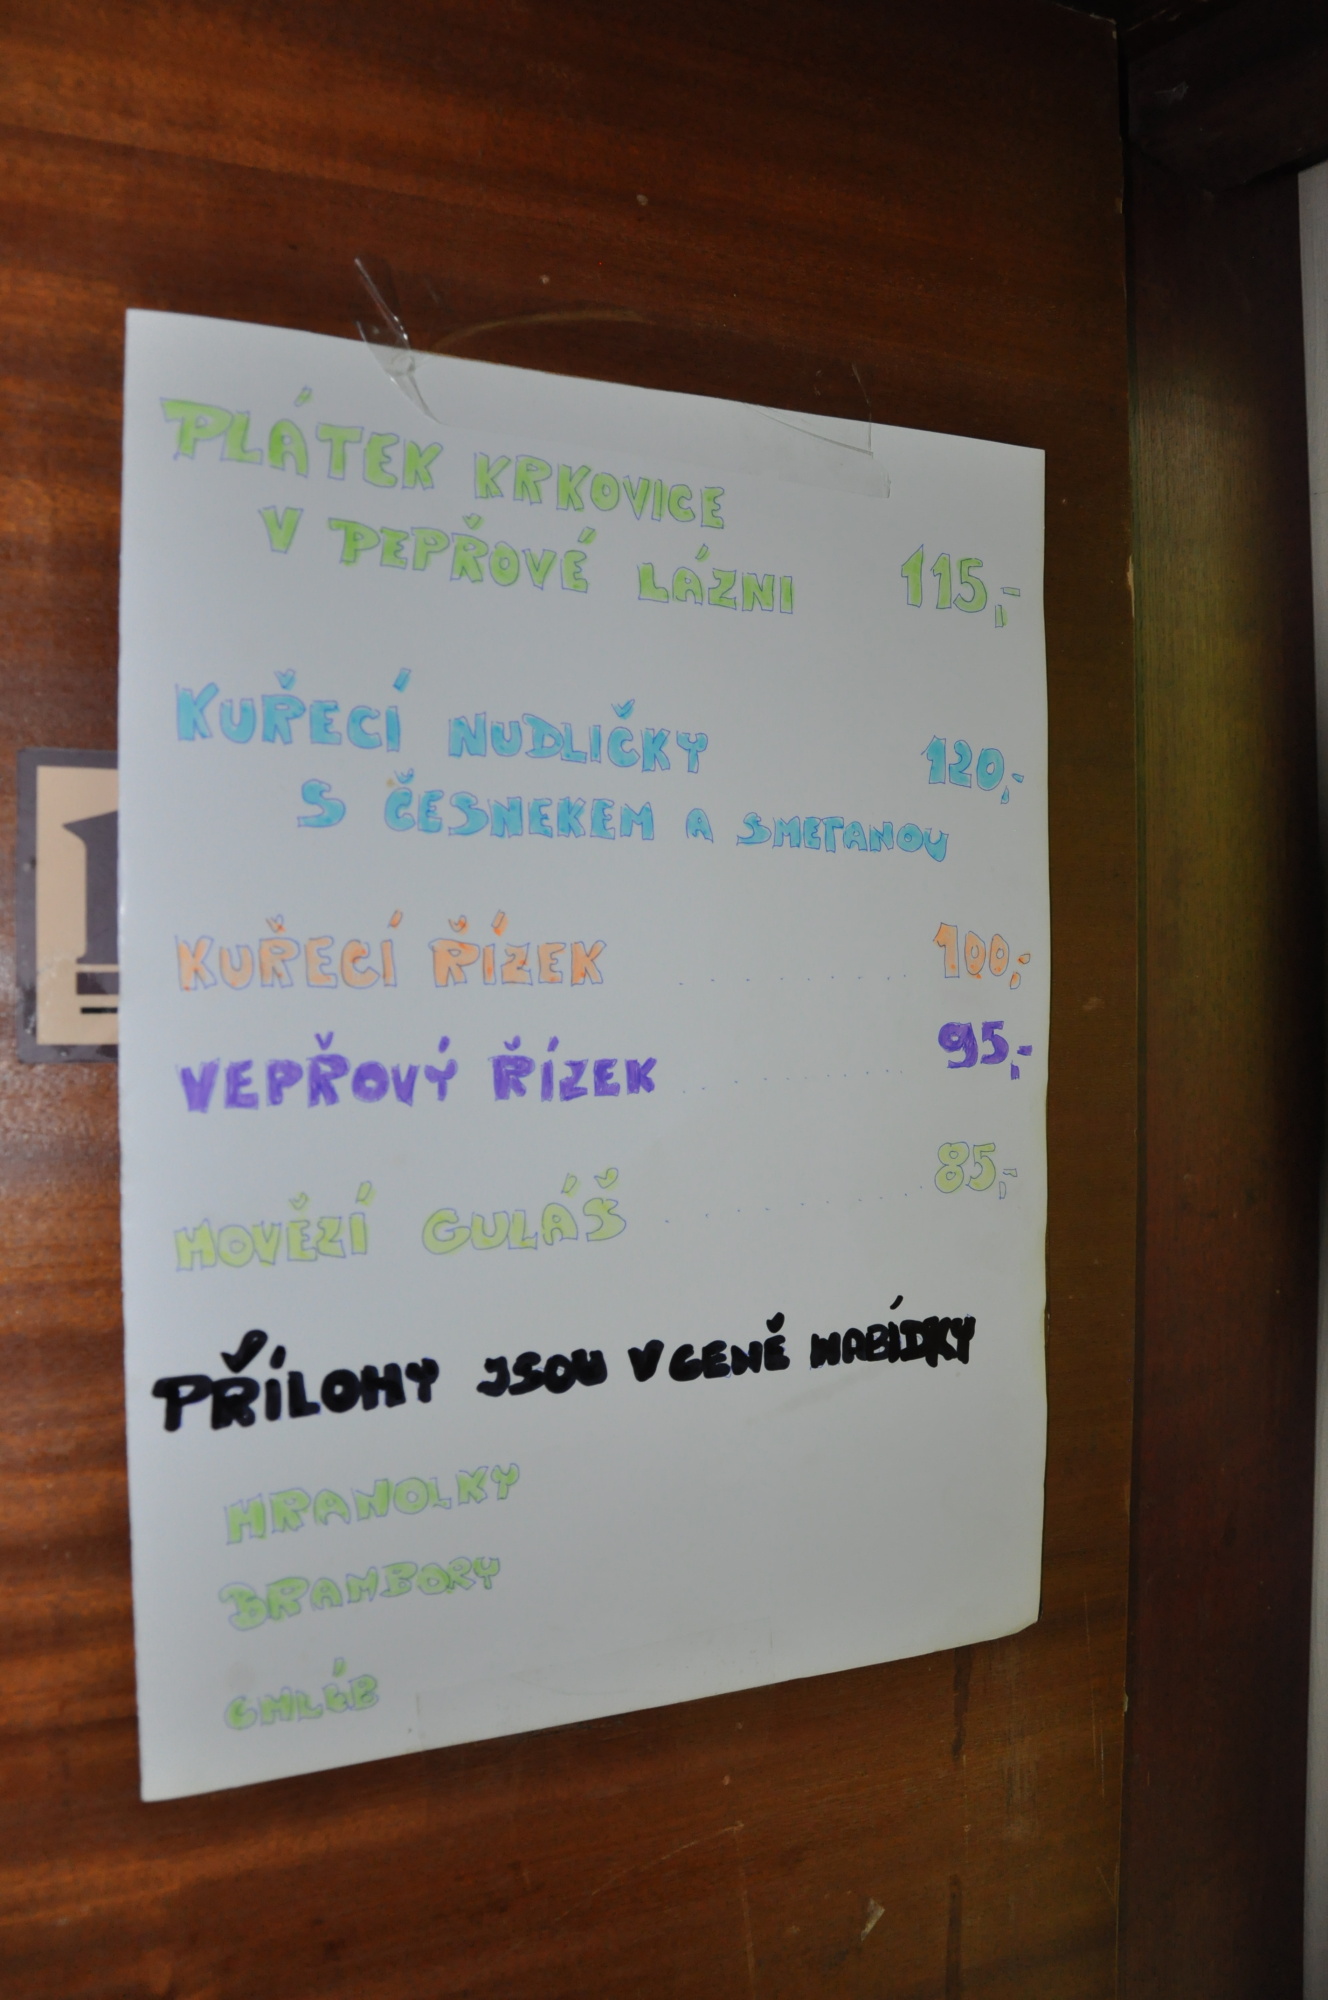 PLÁTEK KRKOVICE
V PEPŘOVÉ LÁZNI 115,-
KUŘECÍ NUDLIČKY 120,-
S ČESNEKEM A SMETANOU
KUŘECÍ ŘÍZEK .......... 100,-
VEPŘOVÝ ŘÍZEK .......... 95,-
HOVĚZÍ GULÁŠ .......... 85,-
PŘÍLOHY JSOU V CENĚ NABÍDKY
HRANOLKY
BRAMBORY
CHLÉB